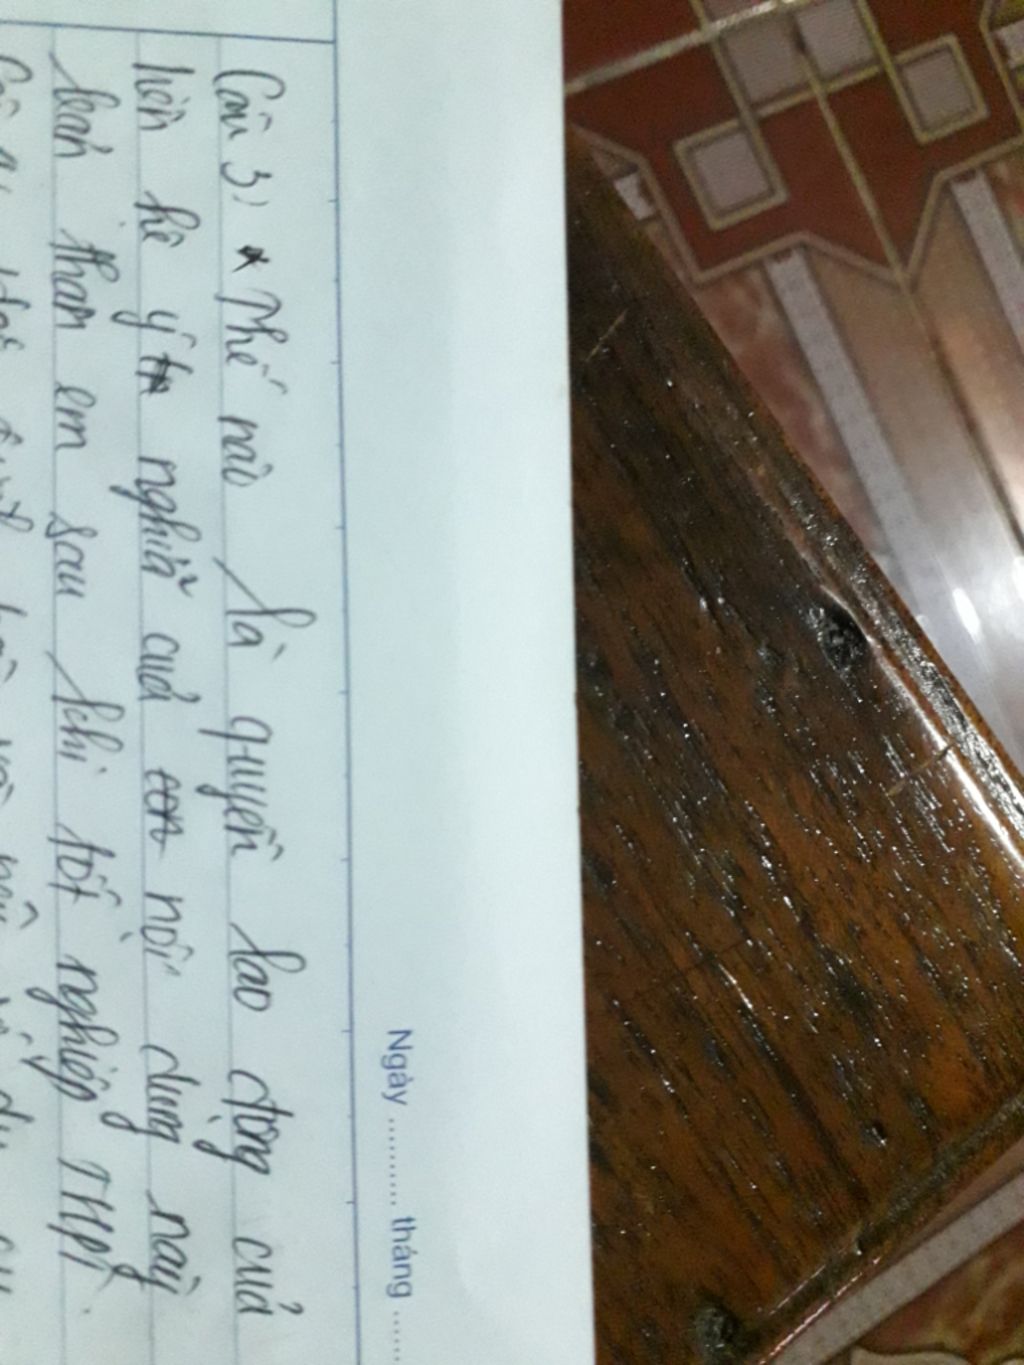 Ngày .......... tháng ......
Câu 3) * Thế nào là quyền lao động của
liên hệ ý nghĩa của nội dung này
bản tham em sau khi tốt nghiệp THPT.